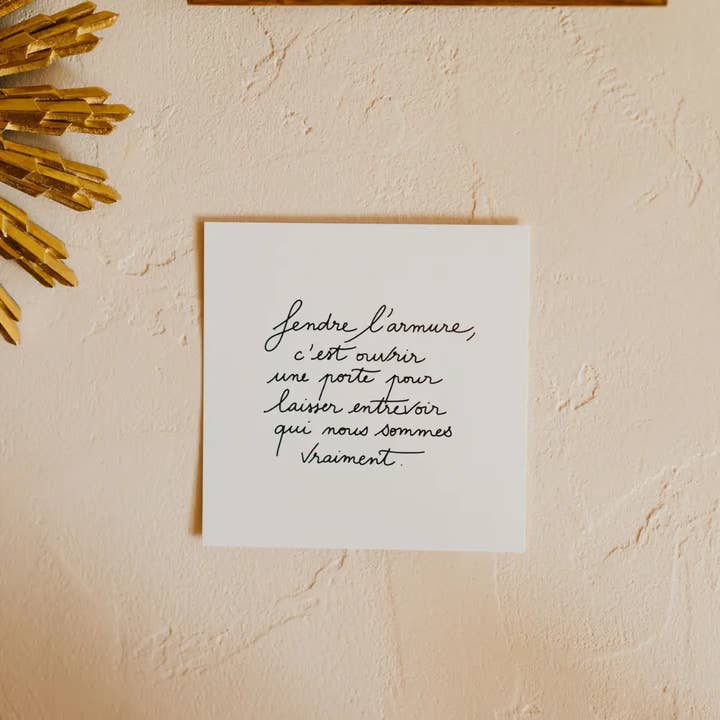 fendre l'armure,
c'est ouvrir
une porte pour
laisser entrevoir
qui nous sommes
vraiment.